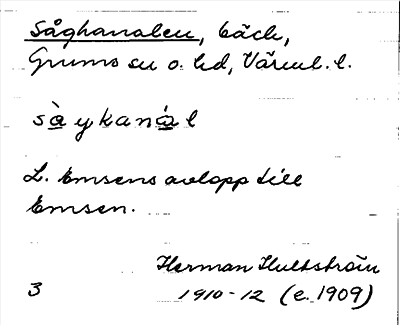 Såghanalen, bäck,
Grums sn o. hd, Värml. l.
sàykanál
L. Emsens avlopp till
Emsen.
Herman Hultström
3 1910-12 (e. 1909)